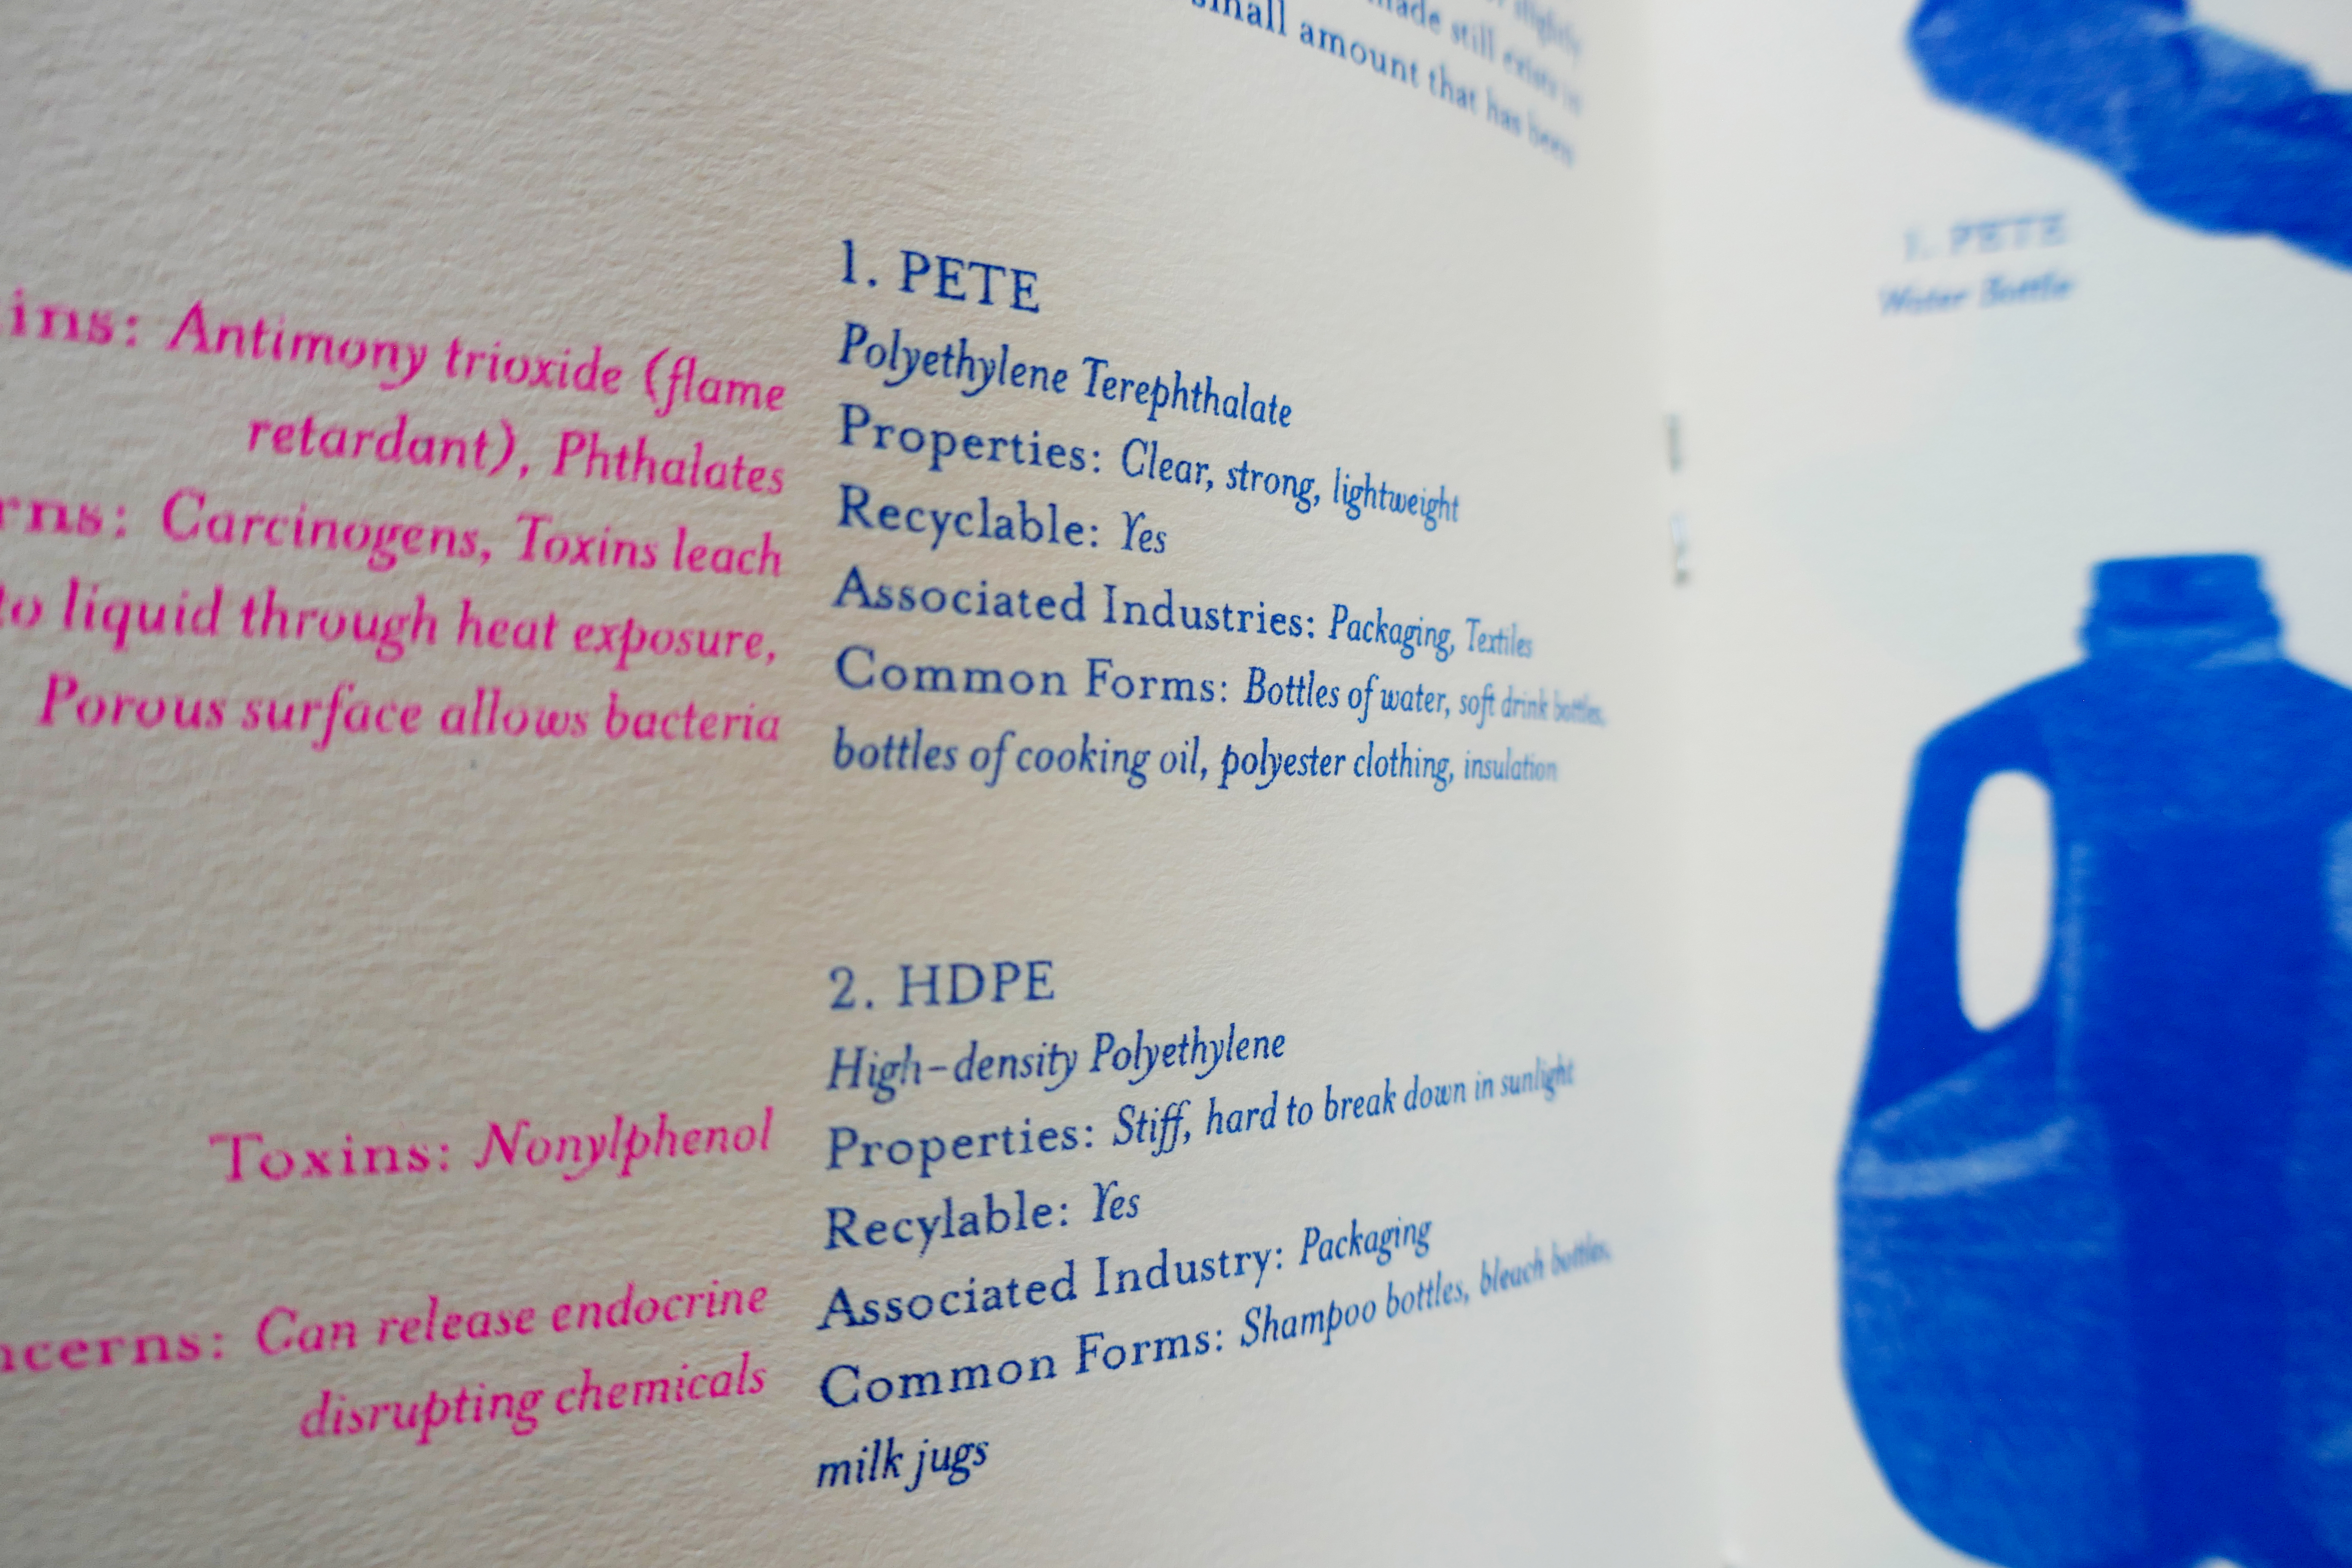 small amount that has been
made still exists in
slightly
1. PETE
Polyethylene Terephthalate
Properties: Clear, strong, lightweight
Recyclable: Yes
Associated Industries: Packaging, Textiles
Common Forms: Bottles of water, soft drink bottles,
bottles of cooking oil, polyester clothing, insulation
ins: Antimony trioxide (flame
retardant), Phthalates
rns: Carcinogens, Toxins leach
to liquid through heat exposure,
Porous surface allows bacteria
2. HDPE
High-density Polyethylene
Properties: Stiff, hard to break down in sunlight
Recylable: Yes
Associated Industry: Packaging
Common Forms: Shampoo bottles, bleach bottles,
milk jugs
Toxins: Nonylphenol
ncerns: Can release endocrine
disrupting chemicals
1. PETE
Water Bottle